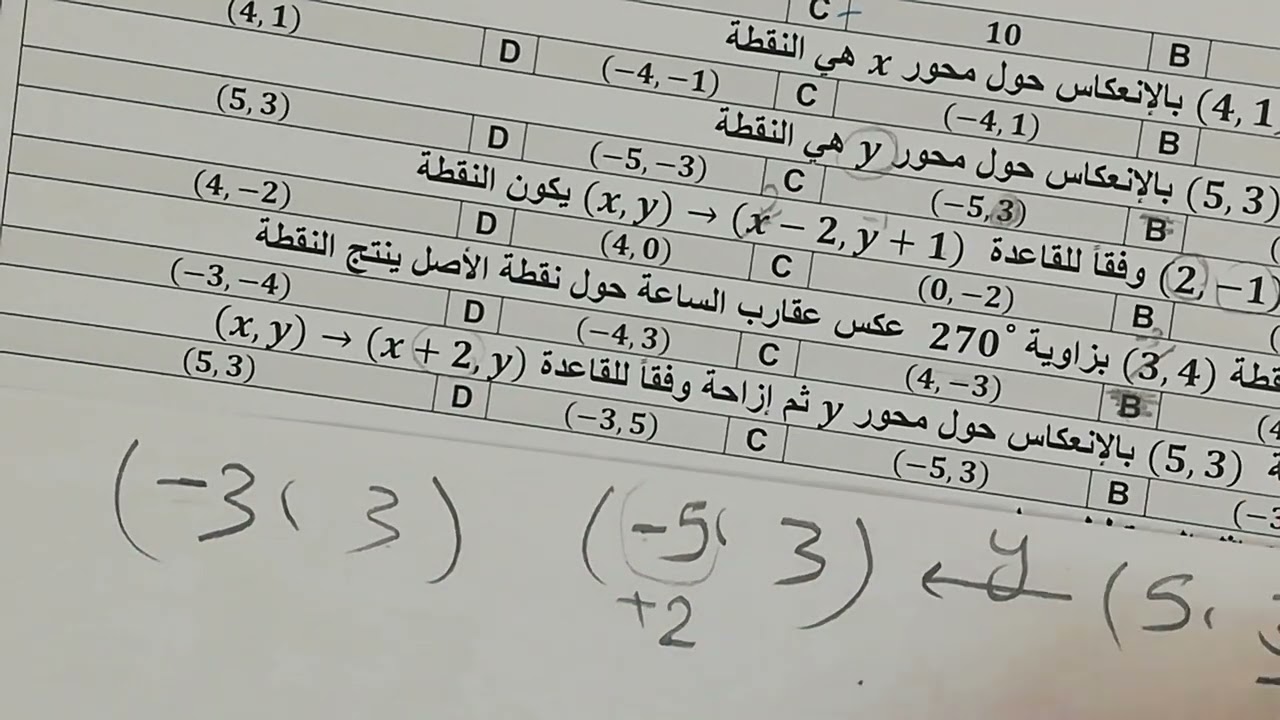 C 10 B
(4, 1 بالإنعكاس حول محور x هي النقطة
B (−4, 1) C (−4, −1) D (4, 1)
(5, 3) بالإنعكاس حول محور y هي النقطة
B (−5, 3) C (−5, −3) D (5, 3)
(2, −1) وفقاً للقاعدة (x, y) → (x − 2, y + 1) يكون النقطة
B (0, −2) C (4, 0) D (4, −2)
(3, 4) بزاوية 270° عكس عقارب الساعة حول نقطة الأصل ينتج النقطة
B (4, −3) C (−4, 3) D (−3, −4)
(5, 3) بالإنعكاس حول محور y ثم إزاحة وفقاً للقاعدة (x, y) → (x + 2, y)
B (−5, 3) C (−3, 5) D (5, 3)
(−3، 3) (−5، 3) ← y (5،
+2